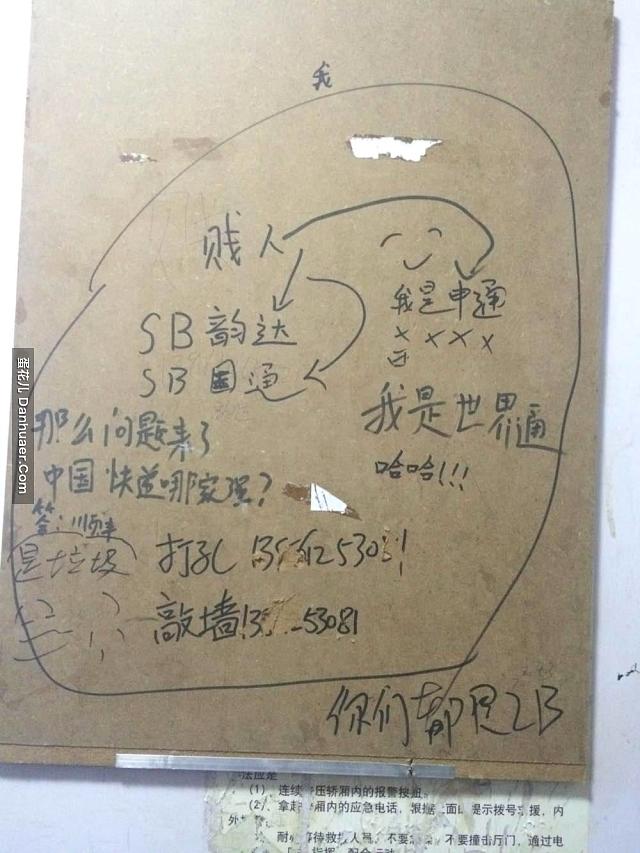 我
贱人
SB 韵达
SB 国通
我是申通
××××
我是世界通
哈哈!!!
那么问题来了
中国快递哪家强?
答:顺丰
是垃圾
打孔
敲墙
53081
你们都是2B
法应是
(1)、连续 压轿厢内的报警按钮。
(2)、拿起 厢内的应急电话，根据上面 提示拨号求援，内
外
、耐心等待救 人员，不要 ，不要撞击厅门，通过电
蛋花儿 Danhuaer.Com